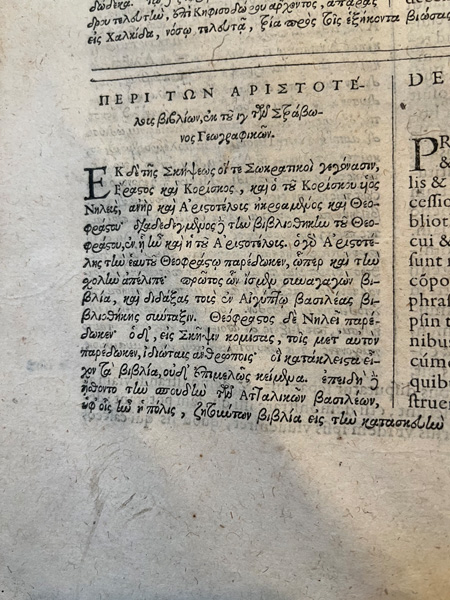 δώδεκα.
ἐπὶ Κηφισοδώρου ἄρχοντος, ἀπάρας
εἰς Χαλκίδα, νόσῳ τελευτᾷ, τρία πρὸς τοῖς ἑξήκοντα βιώσας
ΠΕΡΙ ΤΩΝ ΑΡΙΣΤΟΤΕ-
λους βιβλίων, ἐκ τοῦ ιγ τῶν Στράβω-
νος Γεωγραφικῶν.
ΕΚ δὲ τῆς Σκήψεως οἵ τε Σωκρατικοὶ γεγόνασιν,
Ἔραστος καὶ Κορίσκος, καὶ ὁ τοῦ Κορίσκου υἱὸς
Νηλεὺς, ἀνὴρ καὶ Ἀριστοτέλους ἠκροαμένος καὶ Θεο-
φράστου· διαδεδεγμένος δὲ τὴν βιβλιοθήκην τοῦ Θεο-
φράστου, ἐν ᾗ ἦν καὶ ἡ τοῦ Ἀριστοτέλους. ὁ γοῦν Ἀριστοτέ-
λης τὴν ἑαυτοῦ Θεοφράστῳ παρέδωκεν, ᾧπερ καὶ τὴν
σχολὴν ἀπέλιπε· πρῶτος ὧν ἴσμεν συναγαγὼν βι-
βλία, καὶ διδάξας τοὺς ἐν Αἰγύπτῳ βασιλέας βι-
βλιοθήκης σύνταξιν. Θεόφραστος δὲ Νηλεῖ παρέ-
δωκεν· ὁ δ', εἰς Σκῆψιν κομίσας, τοῖς μετ' αὐτὸν
παρέδωκεν, ἰδιώταις ἀνθρώποις· οἳ κατάκλειστα εἶ-
χον τὰ βιβλία, οὐδ' ἐπιμελῶς κείμενα. ἐπειδὴ δὲ
ᾔσθοντο τὴν σπουδὴν τῶν Ἀτταλικῶν βασιλέων,
ὑφ' οἷς ἦν ἡ πόλις, ζητούντων βιβλία εἰς τὴν κατασκευὴν
DE
PR
&
lis &
cessio
bliot
cui &
sunt n
cōpo
phras
psin t
nibus
cúme
quibu
struer